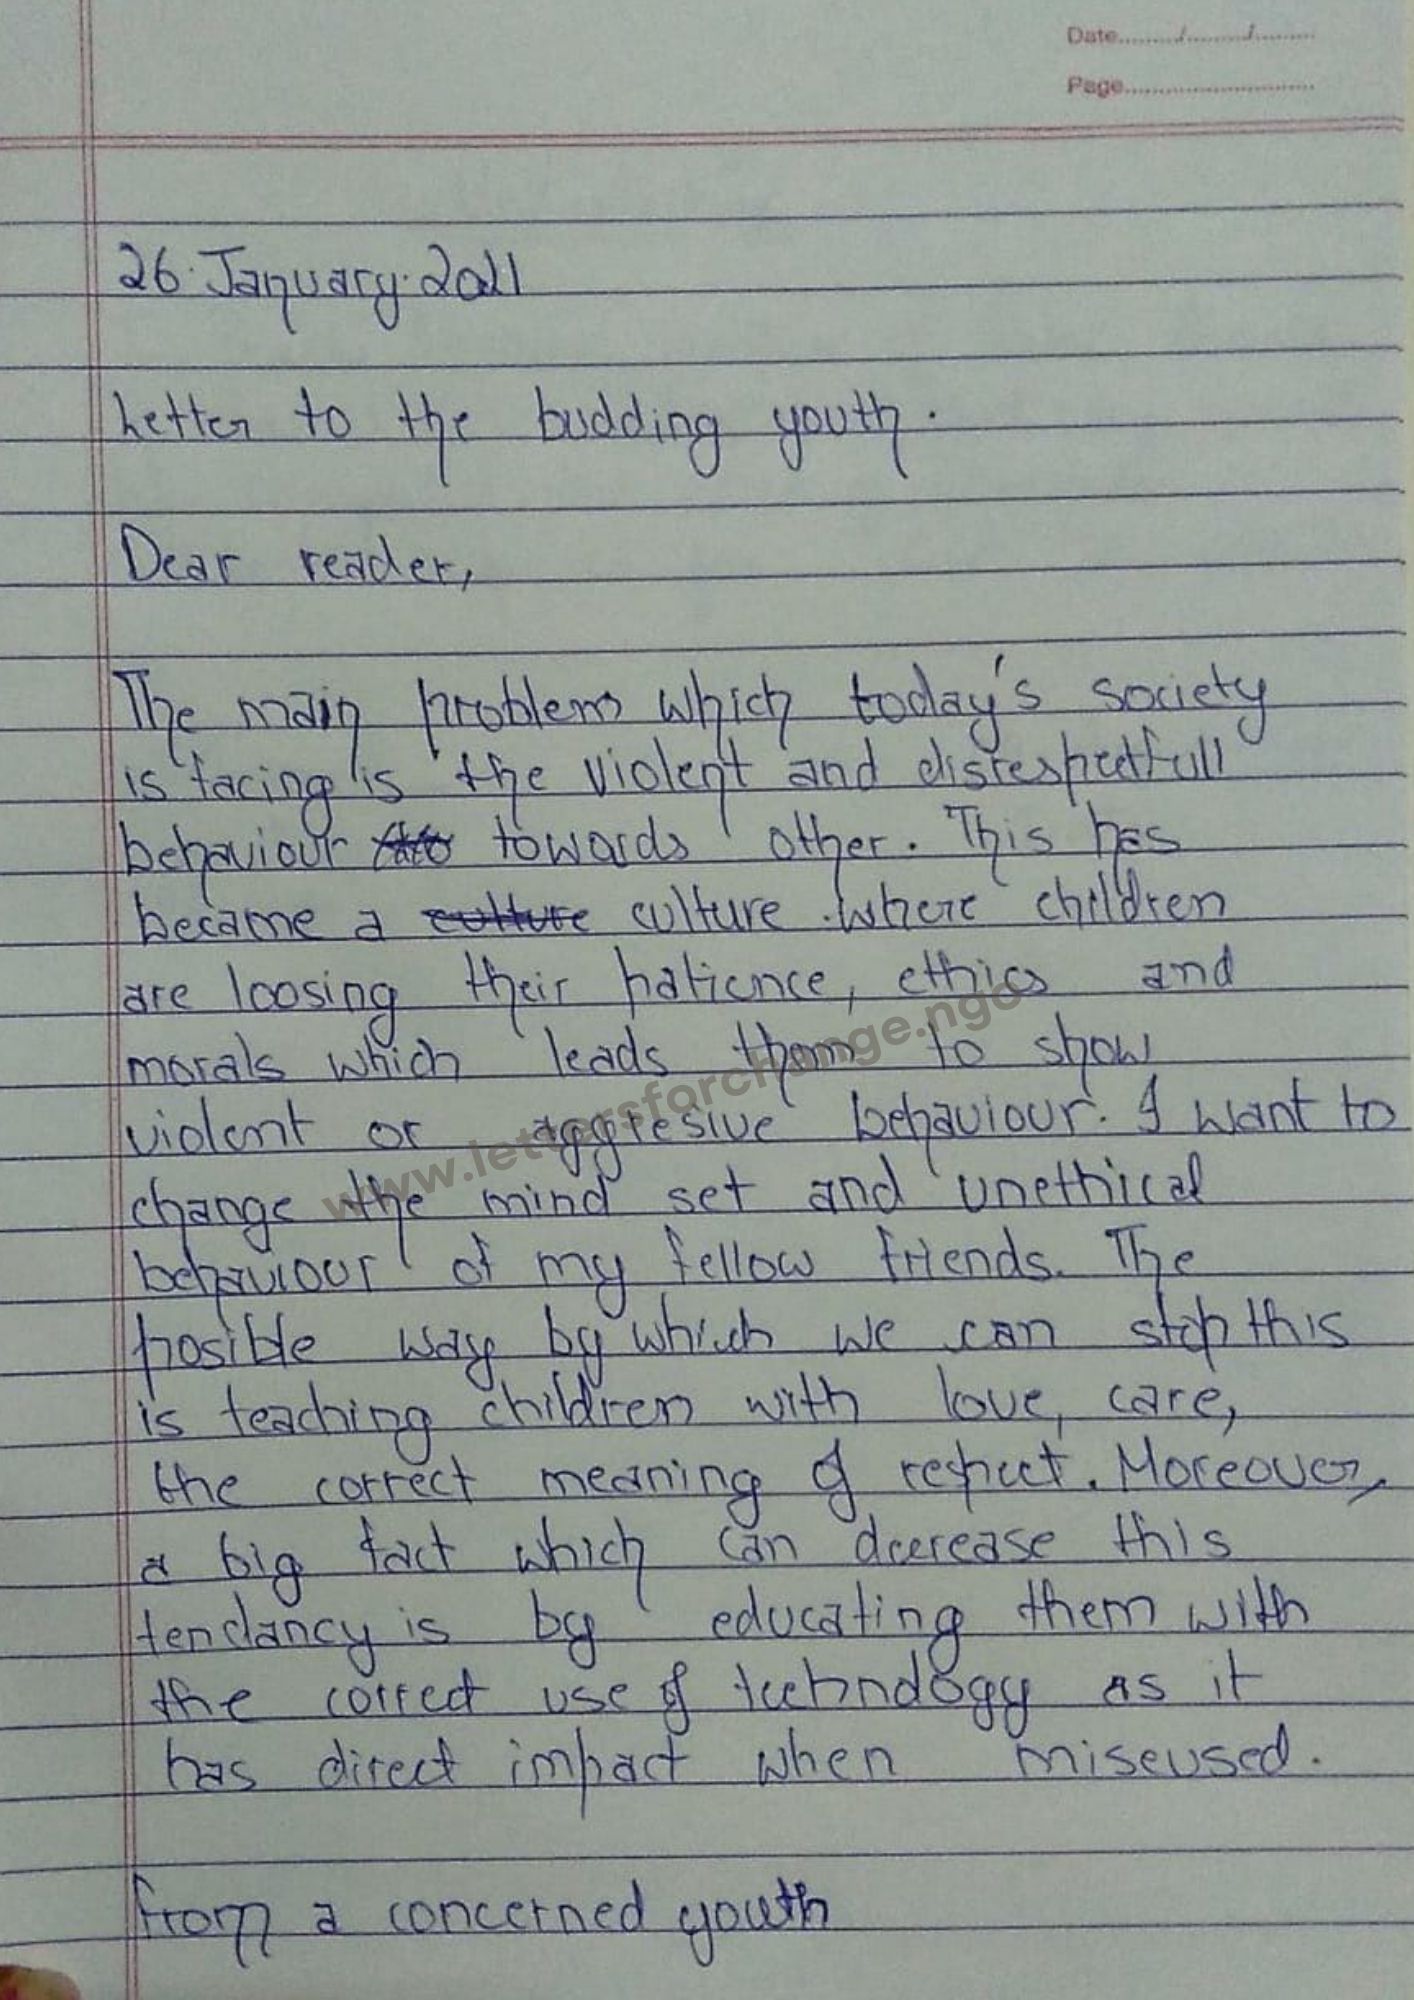 Date......../........./.........
Page............................
26 January 2021
Letter to the budding youth.
Dear reader,
The main problem which today's society
is facing is the violent and disrespectfull
behaviour towards other. This has
became a culture culture where children
are loosing their patience, ethics and
morals which leads them to show
violent or aggresive behaviour. I want to
change the mind set and unethical
behaviour of my fellow friends. The
posible way by which we can stop this
is teaching children with love, care,
the correct meaning of respect. Moreover,
a big fact which can decrease this
tendancy is by educating them with
the correct use of technology as it
has direct impact when miseused.
from a concerned youth
www.lettersforchange.ngo